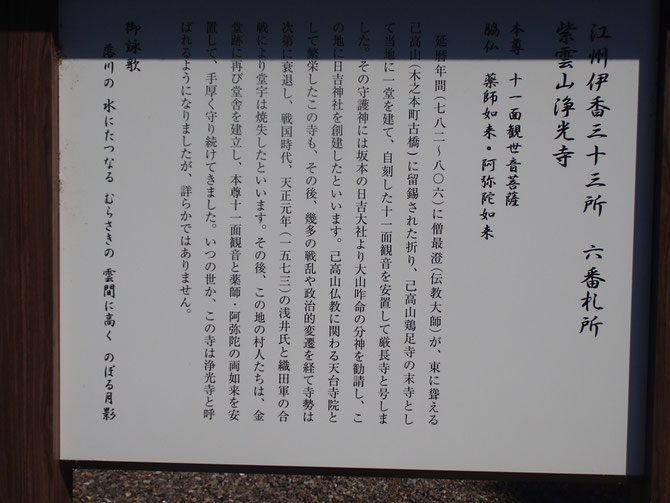 江州伊香三十三所　六番札所
紫雲山浄光寺
本尊　十一面観世音菩薩
脇仏　薬師如来・阿弥陀如来
延暦年間(七八二～八〇六)に僧最澄(伝教大師)が、東に聳える
己高山(木之本町古橋)に留錫された折り、己高山鶏足寺の末寺とし
て当地に一堂を建て、自刻した十一面観音を安置して厳長寺と号しま
した。その守護神には坂本の日吉大社より大山咋命の分神を勧請し、こ
の地に日吉神社を創建したといいます。己高山仏教に関わる天台寺院と
して繁栄したこの寺も、その後、幾多の戦乱や政治的変遷を経て寺勢は
次第に衰退し、戦国時代、天正元年(一五七三)の浅井氏と織田軍の合
戦により堂宇は焼失したといいます。その後、この地の村人たちは、金
堂跡に再び堂舎を建立し、本尊十一面観音と薬師・阿弥陀の両如来を安
置して、手厚く守り続けてきました。いつの世か、この寺は浄光寺と呼
ばれるようになりましたが、詳らかではありません。
御詠歌
川の　水にたつなる　むらさきの　雲間に高く　のぼる月影